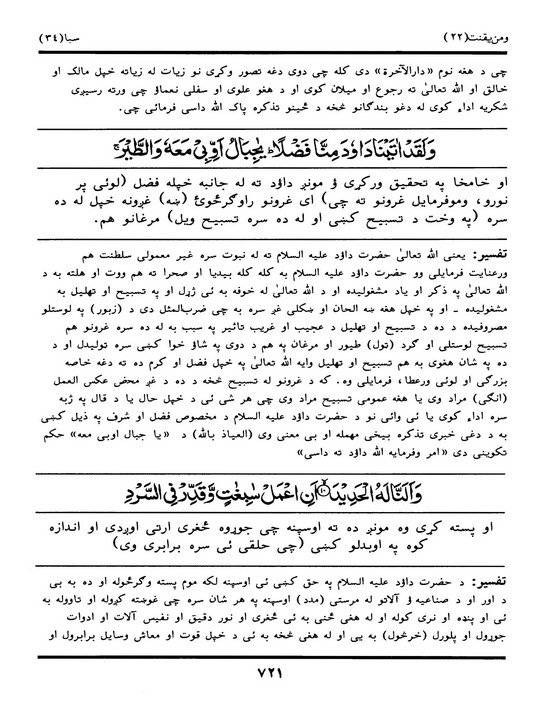 ومن يقنت(٢٢) سبا(٣٤)
چی د هغه نوم «دارالآخرة» دی کله چی دوی دغه تصور وکړی نو زیات له زیاته خپل مالک او
خالق او الله تعالیٰ ته رجوع او میلان کوی او د هغو علوی او سفلی نعماؤ چی ورته رسیږی
شکریه اداء کوی له دغو بندګانو څخه د ځینو تذکره پاک الله داسی فرمائی چی.
وَلَقَدْ اٰتَيْنَا دَاوٗدَ مِنَّا فَضْلًا ؕ يٰجِبَالُ اَوِّبِيْ مَعَهٗ وَالطَّيْرَ ۚ
او خامخا په تحقیق ورکړی ؤ مونږ داؤد ته له جانبه خپله فضل (لوئی پر
نورو، وموفرمایل غرونو ته چی) ای غرونو راوګرځوئ (ښه) غږونه خپل له ده
سره (په وخت د تسبیح کښی او له ده سره تسبیح ویل) مرغانو هم.
تفسیر: یعنی الله تعالیٰ حضرت داؤد علیه السلام ته له نبوت سره غیر معمولی سلطنت هم
ورعنایت فرمایلی وو حضرت داؤد علیه السلام به کله کله بیدیا او صحرا ته هم ووت او هلته به د
الله تعالیٰ په ذکر او یاد مشغولیده او د الله تعالیٰ له خوفه به ئی ژړل او په تسبیح او تهلیل به
مشغولیده ـ او په خپل هغه ښه الحان او ښکلی غږ سره به چی ضرب‌المثل دی د (زبور) په لوستلو
مصروفیده د ده د تسبیح او تهلیل د عجیب او غریب تاثیر په سبب به له ده سره غرونو هم
تسبیح لوستلی او ګرد (ټول) طیور او مرغان په هم د دوی په شاؤ خوا کښی سره ټولیدل او د
ده په شان هغوی به هم تسبیح او تهلیل وایه الله تعالیٰ په خپل فضل او کرم ده ته دغه خاصه
بزرګی او لوئی ورعطاء فرمایلی وه. که د غرونو له تسبیح څخه د ده د غږ محض عکس العمل
(انګی) مراد وی یا هغه عمومی تسبیح مراد وی چی هر شی ئی د خپل حال یا د قال په ژبه
سره اداء کوی یا ئی وائی نو د حضرت داؤد علیه السلام د مخصوص فضل او شرف په ذیل کښی
به د دغی خبری تذکره بیخی مهمله او بی معنی وی (العیاذ بالله) د «یا جبال اوبی معه» حکم
تکوینی دی «امر وفرمایه الله داؤد ته داسی»
وَاَلَنَّا لَهُ الْحَدِيْدَ ۙ۱۰ اَنِ اعْمَلْ سٰبِغٰتٍ وَّقَدِّرْ فِي السَّرْدِ
او پسته کړی وه مونږ ده ته اوسپنه چی جوړوه څغری ارتی اوږدی او اندازه
کوه په اوبدلو کښی (چی حلقی ئی سره برابری وی)
تفسیر: د حضرت داؤد علیه السلام په حق کښی ئی اوسپنه لکه موم پسته وګرځوله او ده به بی
د اور او د صناعیه ؤ آلاتو له مرستی (مدد) اوسپنه په هر شان سره چی غوښته کږوله او تاووله به
ئی او پنډه او نری کوله او له هغی څنی به ئی څغری او نور دقیق او نفیس آلات او ادوات
جوړول او پلورل (خرڅول) به یی او له هغی څخه به ئی د خپل قوت او معاش وسایل برابرول او
٧٢١